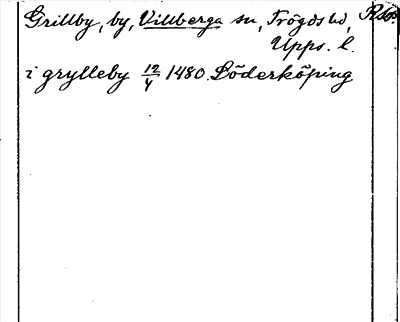 Grillby, by, Villberga sn, Trögds hd,
Upps. l.
i grylleby 12/4 1480. Söderköping